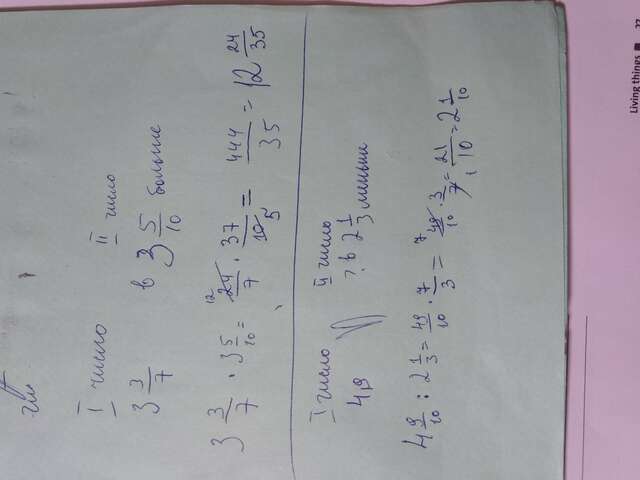 I число
II число
3 3/7
в 3 5/10 больше
3 3/7 · 3 5/10 = 24/7 · 37/10 = 444/35 = 12 24/35
12
5
I число
II число
4,9
? в 2 1/3 меньши
4 9/10 : 2 1/3 = 49/10 · 7/3 = 49/10 · 3/7 = 21/10 = 2 1/10
7
1
Living things ■ 27